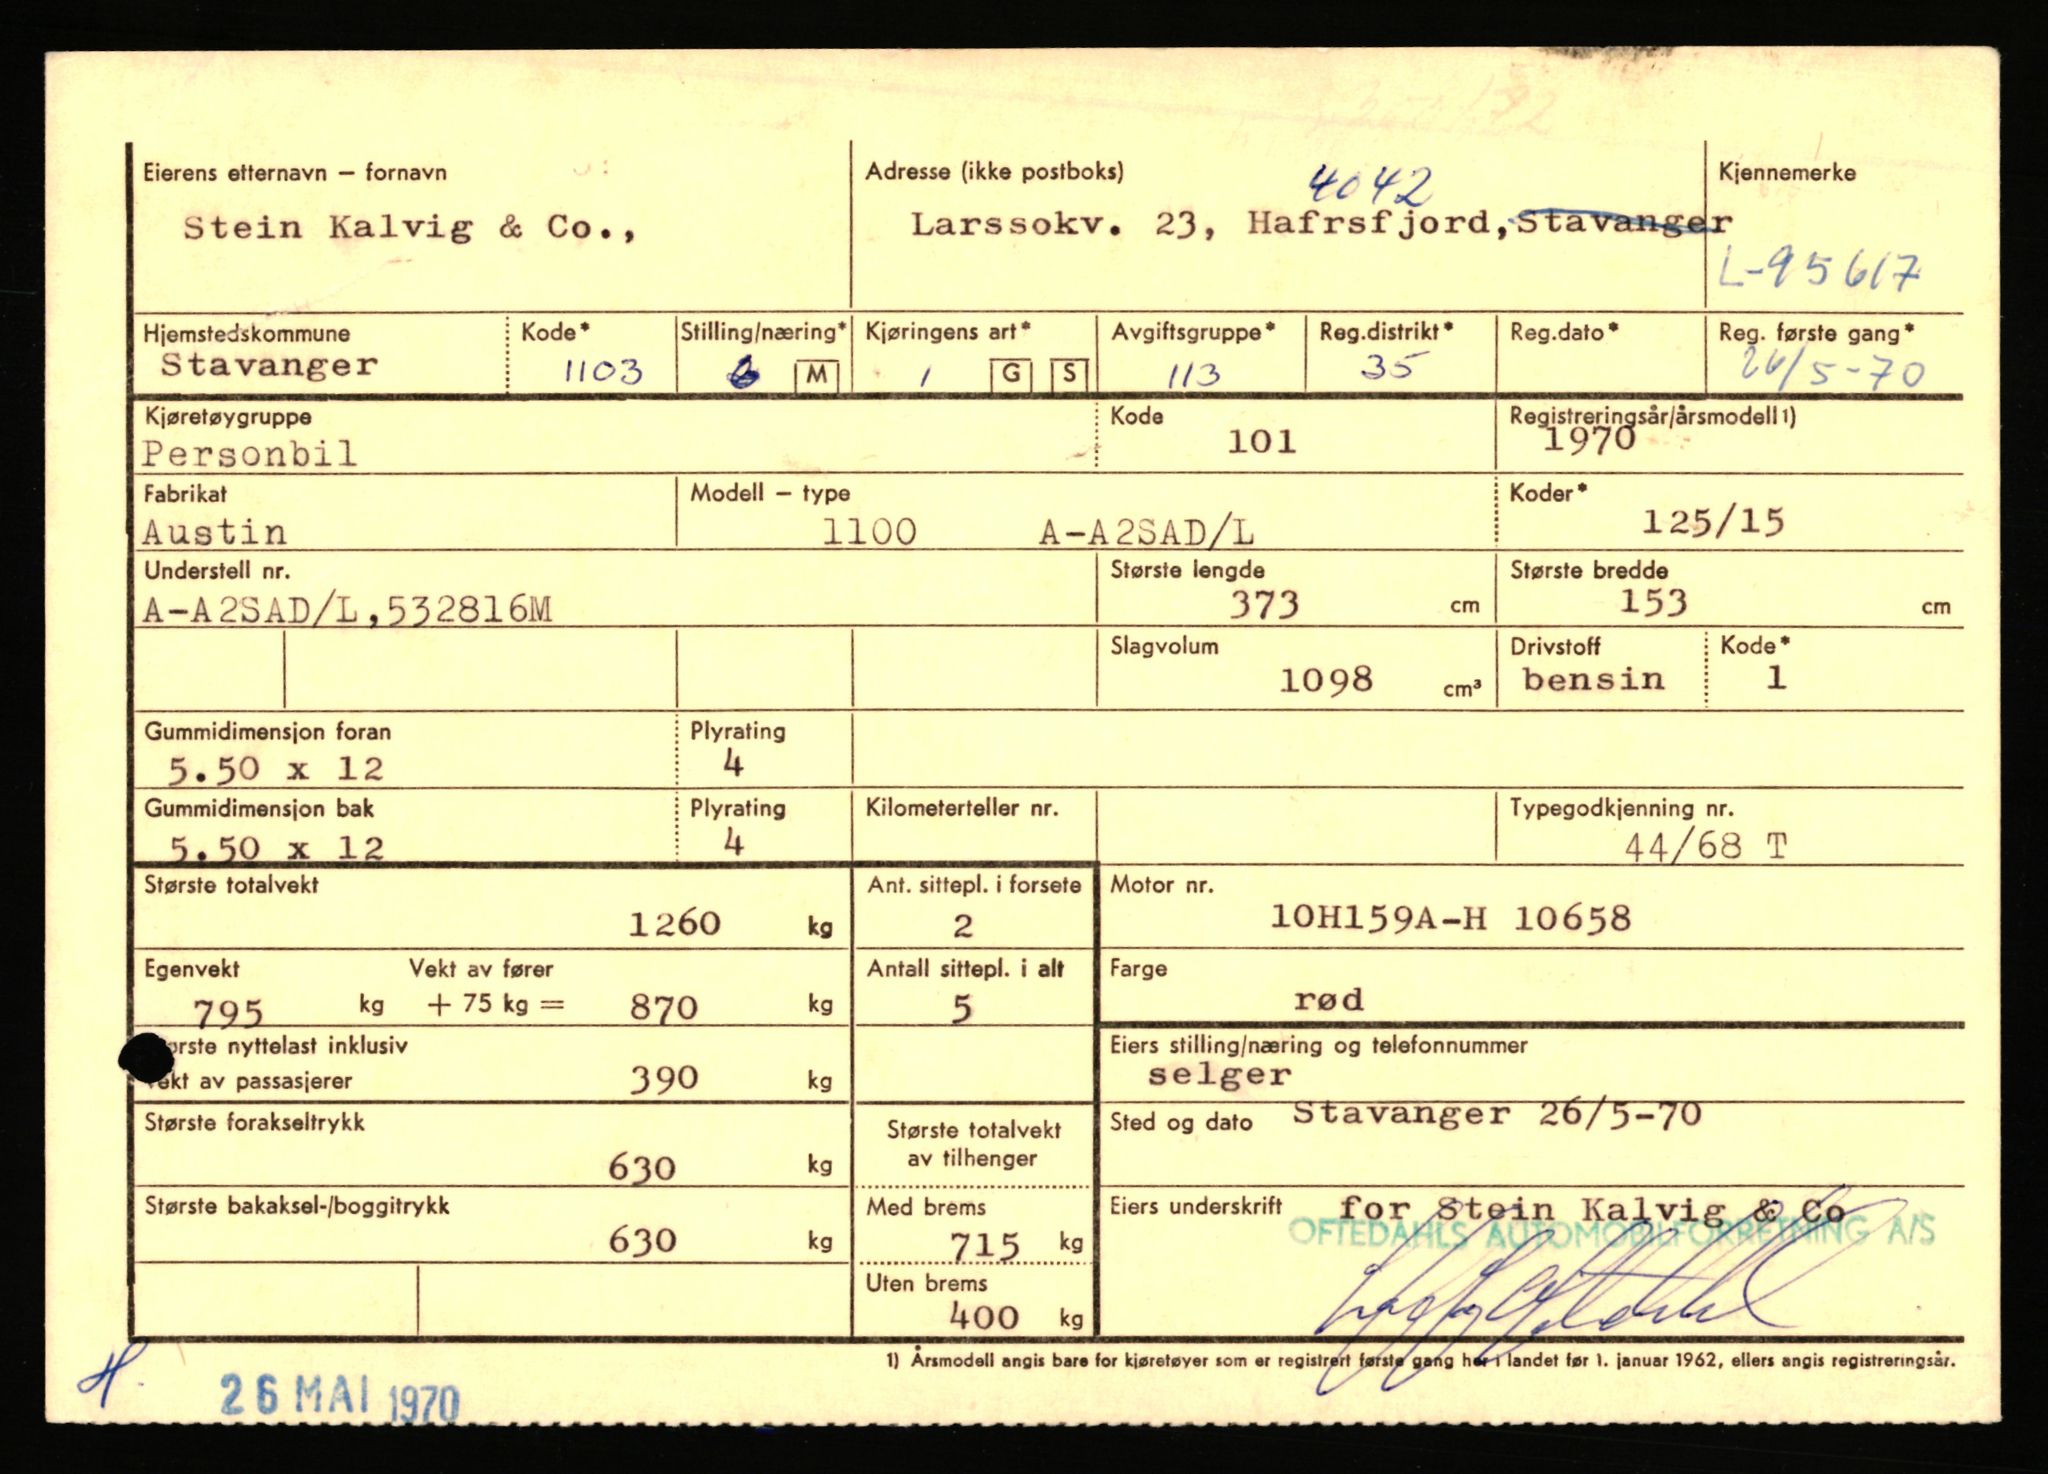 Eierens etternavn – fornavn
Stein Kalvig & Co.,
Adresse (ikke postboks)
4042
Larssokv. 23, Hafrsfjord, Stavanger
Kjennemerke
L-95617
Hjemstedskommune
Stavanger
Kode*
1103
Stilling/næring*
M
Kjøringens art*
1 G S
Avgiftsgruppe*
113
Reg.distrikt*
35
Reg.dato*
Reg. første gang*
26/5-70
Kjøretøygruppe
Personbil
Kode
101
Registreringsår/årsmodell 1)
1970
Fabrikat
Austin
Modell – type
1100 A-A2SAD/L
Koder*
125/15
Understell nr.
A-A2SAD/L,532816M
Største lengde
373 cm
Største bredde
153 cm
Slagvolum
1098 cm³
Drivstoff
bensin
Kode*
1
Gummidimensjon foran
5.50 x 12
Plyrating
4
Gummidimensjon bak
5.50 x 12
Plyrating
4
Kilometerteller nr.
Typegodkjenning nr.
44/68 T
Største totalvekt
1260 kg
Ant. sittepl. i forsete
2
Motor nr.
10H159A-H 10658
Egenvekt
795 kg
Vekt av fører
+ 75 kg = 870 kg
Antall sittepl. i alt
5
Farge
rød
nyttelast inklusiv
av passasjerer
390 kg
Eiers stilling/næring og telefonnummer
selger
Største forakseltrykk
630 kg
Største totalvekt
av tilhenger
Sted og dato Stavanger 26/5-70
Største bakaksel-/boggitrykk
630 kg
Med brems
715 kg
Uten brems
400 kg
Eiers underskrift for Stein Kalvig & Co
OFTEDAHLS AUTOMOBILFORRETNING A/S
1) Årsmodell angis bare for kjøretøyer som er registrert første gang her i landet før 1. januar 1962, ellers angis registreringsår.
H.
26 MAI 1970